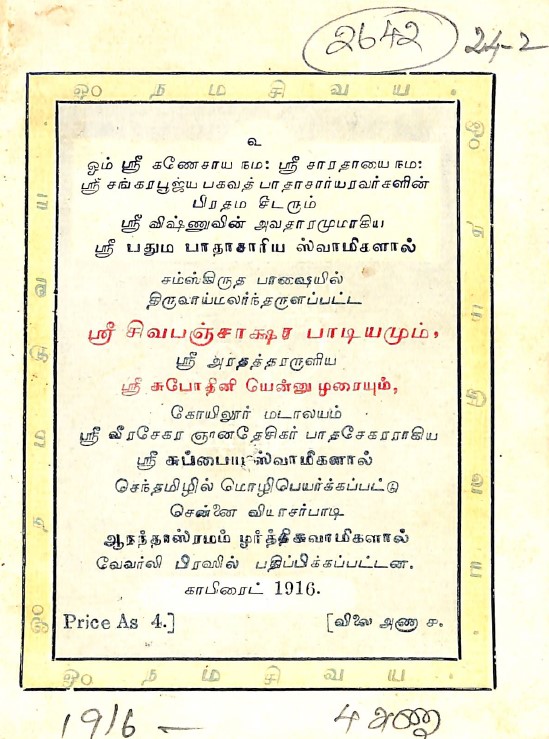 2642 24-2
ஓம் ந ம சி வ ய .
உ
ஓம் ஸ்ரீ கணேசாய நம: ஸ்ரீ சாரதாயை நம:
ஸ்ரீ சங்கரபூஜ்ய பகவத் பாதாசார்யரவர்களின்
பிரதம சீடரும்
ஸ்ரீ விஷ்ணுவின் அவதாரமுமாகிய
ஸ்ரீ பதும பாதாசாரிய ஸ்வாமிகளால்
சம்ஸ்கிருத பாஷையில்
திருவாய்மலர்ந்தருளப்பட்ட
ஸ்ரீ சிவபஞ்சாக்ஷர பாடியமும்,
ஸ்ரீ அரதத்தரருளிய
ஸ்ரீ சுபோதினி யென்னு முரையும்,
கோயிலூர் மடாலயம்
ஸ்ரீ வீரசேகர ஞானதேசிகர் பாதசேகரராகிய
ஸ்ரீ சுப்பைய ஸ்வாமிகளால்
செந்தமிழில் மொழிபெயர்க்கப்பட்டு
சென்னை வியாசர்பாடி
ஆநந்தாஸ்ரமம் மூர்த்திசுவாமிகளால்
வேவர்லி பிரஸில் பதிப்பிக்கப்பட்டன.
காபிரைட் 1916.
Price As 4.] [விலை அணா ச.
ஓம் ந ம சி வ ய .
1916 - 4 அணா